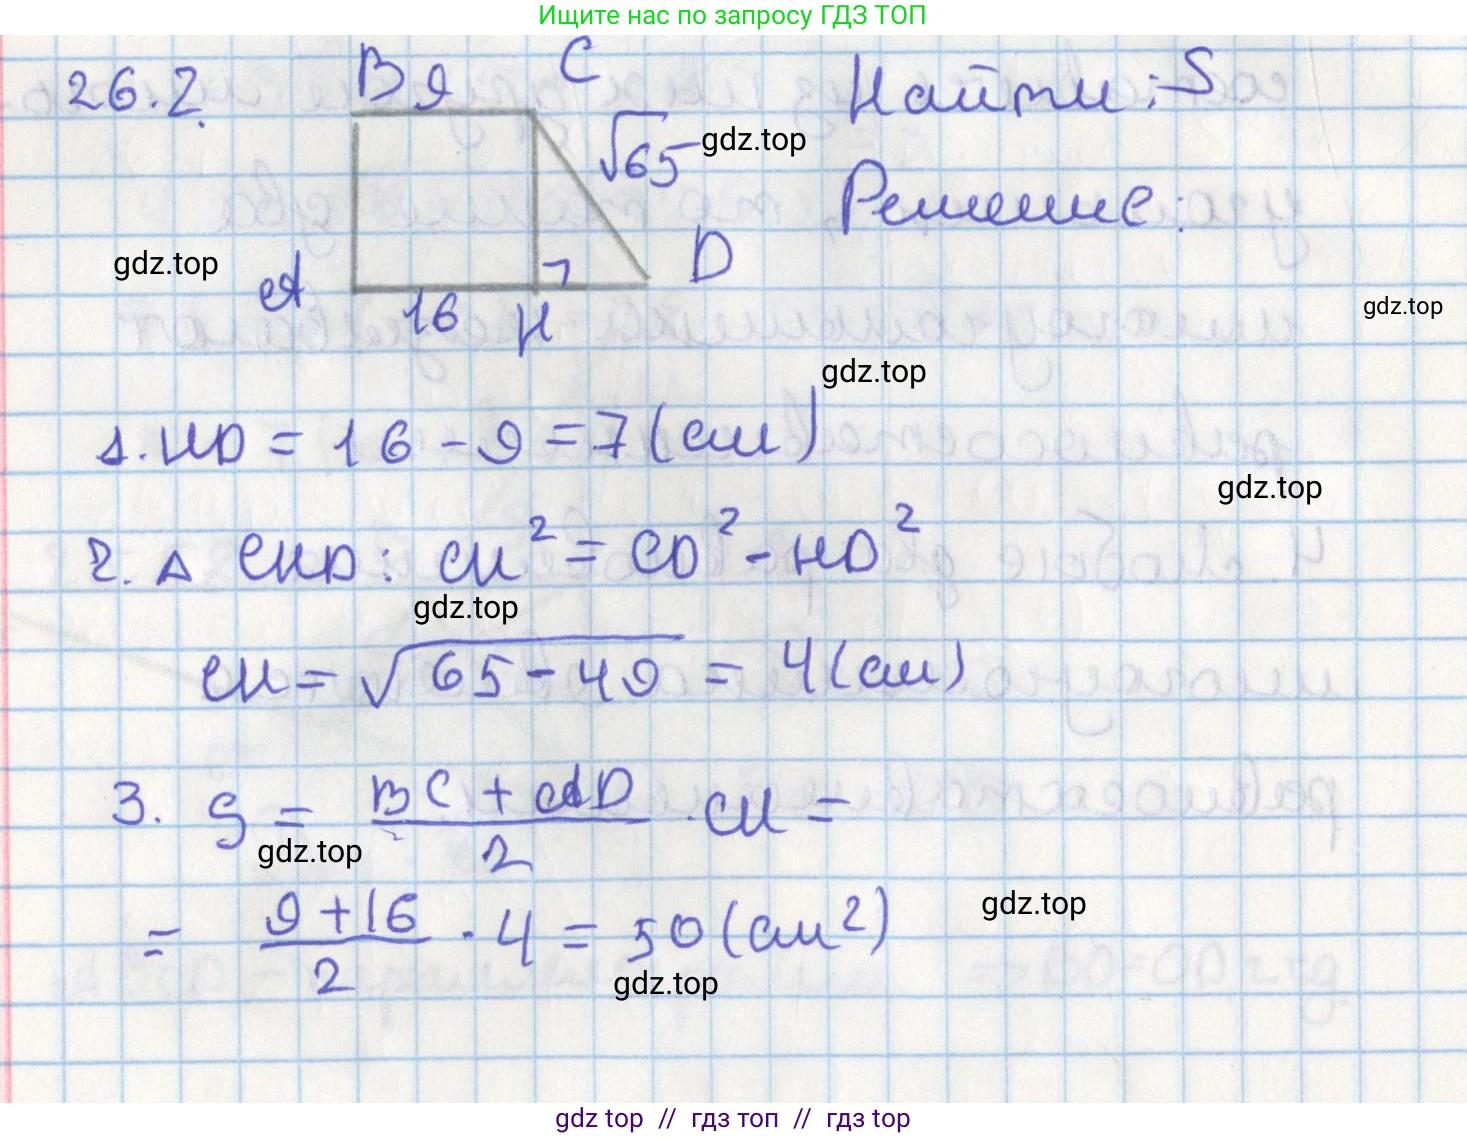 Ищите нас по запросу ГДЗ ТОП
26.2.
B 9 C
√65
Найти: S
gdz.top
Решение:
gdz.top
A
D
16 H
gdz.top
gdz.top
1. HD = 16 - 9 = 7 (см)
gdz.top
2. Δ CHD: CH² = CD² - HD²
gdz.top
CH = √65 - 49 = 4 (см)
3. S = BC + AD / 2 · CH =
gdz.top
= 9 + 16 / 2 · 4 = 50 (см²)
gdz.top
gdz.top
gdz top // гдз топ // гдз top